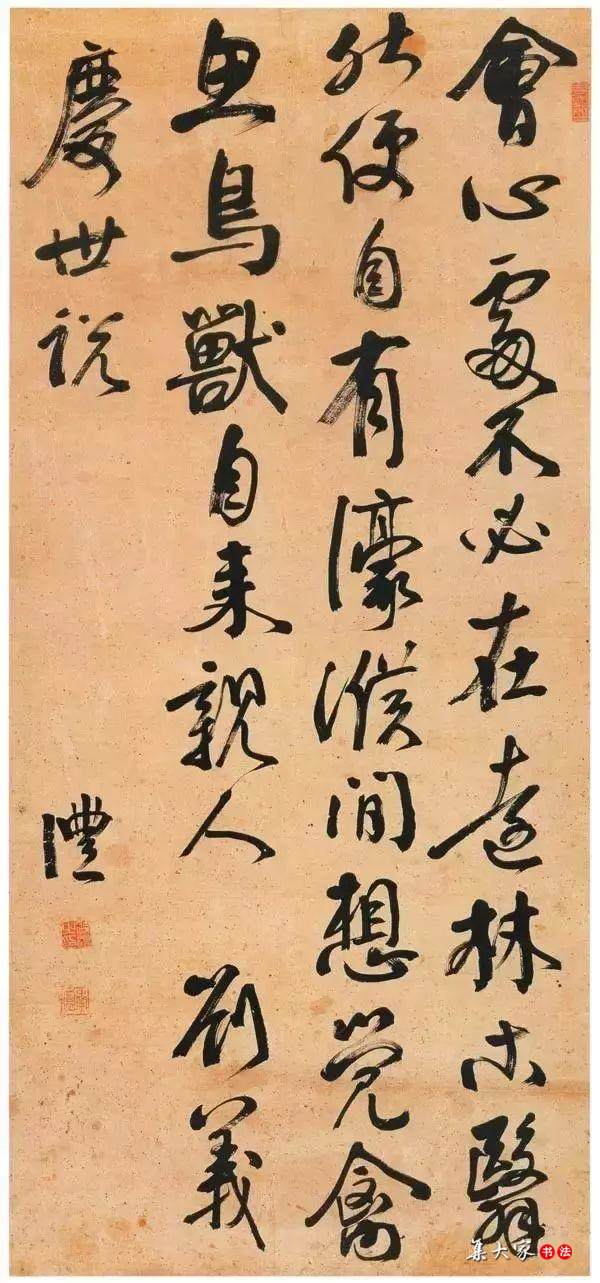 會心處不必在遠林木翳
然便自有濠濮間想覺禽
魚鳥獸自來親人 劉義
慶世說
澧
集大家 书法